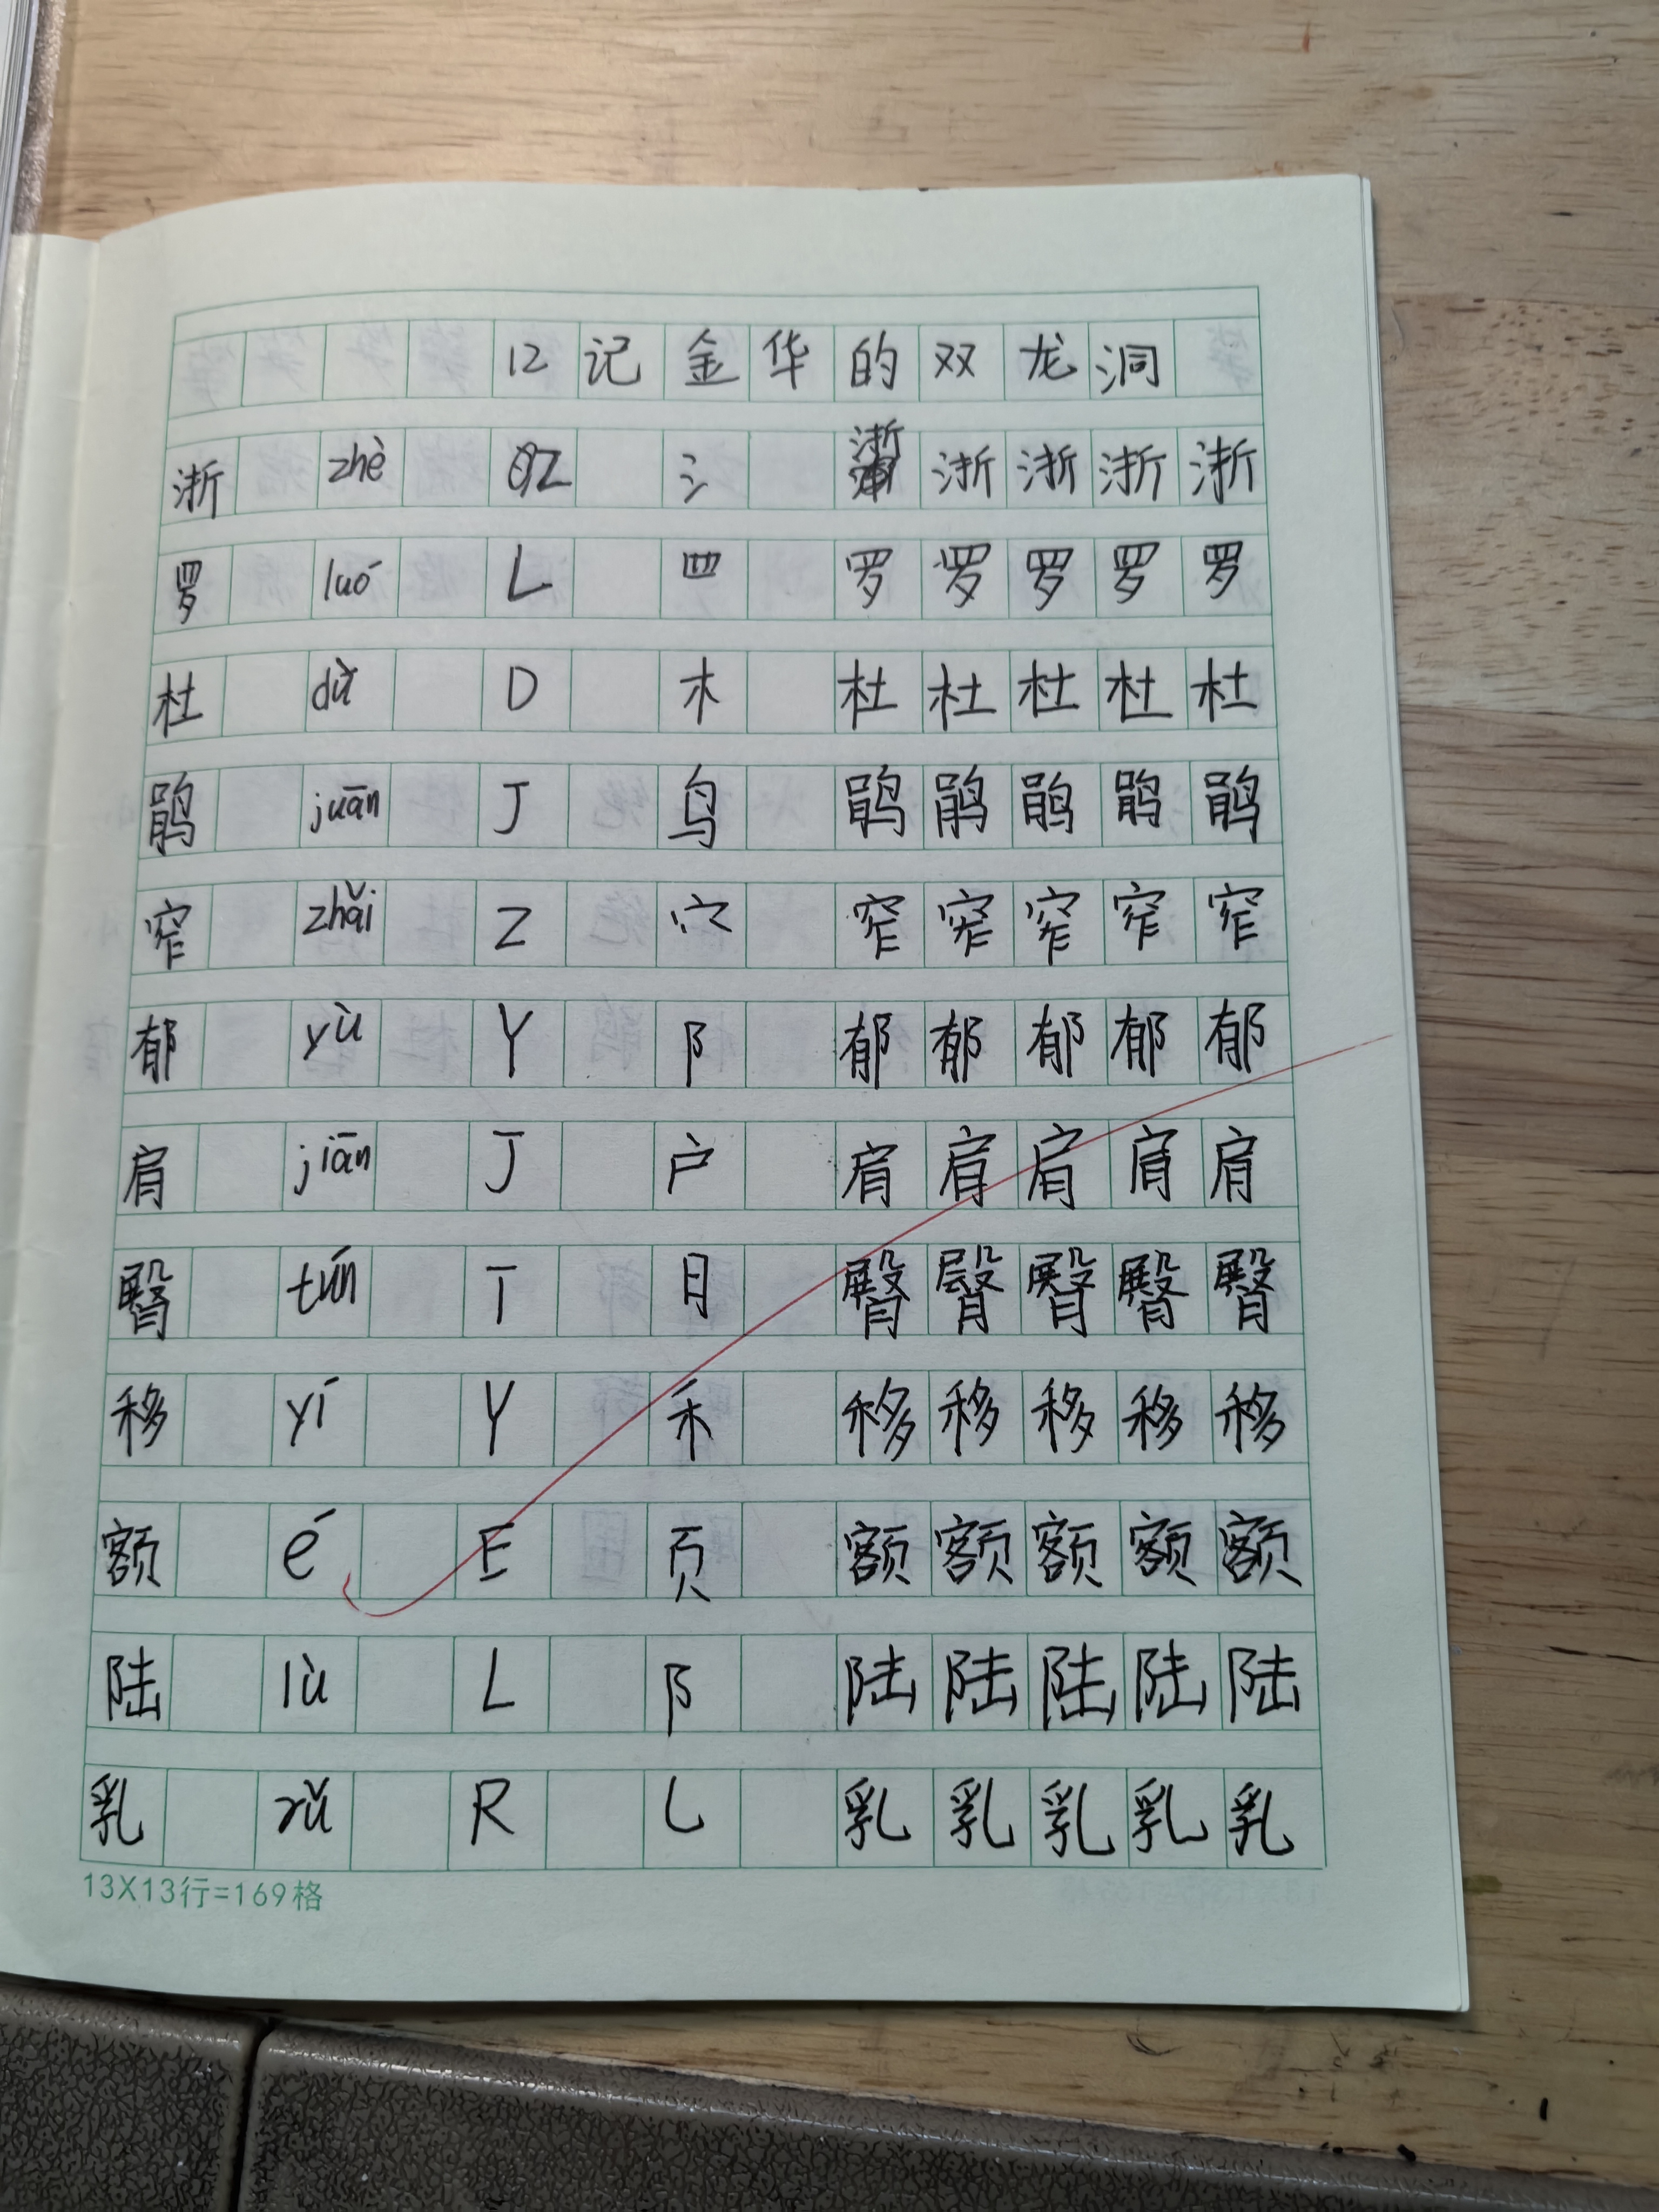 12 记金华的双龙洞
浙 zhè Z 氵 浙 浙 浙 浙 浙
罗 luó L 罒 罗 罗 罗 罗 罗
杜 dù D 木 杜 杜 杜 杜 杜
鹃 juān J 鸟 鹃 鹃 鹃 鹃 鹃
窄 zhǎi Z 穴 窄 窄 窄 窄 窄
郁 yù Y 阝 郁 郁 郁 郁 郁
肩 jiān J 户 肩 肩 肩 肩 肩
臀 tún T 月 臀 臀 臀 臀 臀
移 yí Y 禾 移 移 移 移 移
额 é E 页 额 额 额 额 额
陆 lù L 阝 陆 陆 陆 陆 陆
乳 rǔ R 乚 乳 乳 乳 乳 乳
13X13行=169格